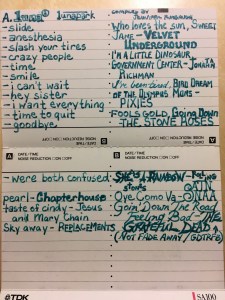 A. Luna lunapark
-slide
-anesthesia
-slash your tires
-crazy people
-time
-smile
-i can't wait
-hey sister
-i want everything
-time to quit
-goodbye
compiled by
Who loves the sun, Sweet
Jane - VELVET
UNDERGROUND
I'M A LITTLE DINOSAUR,
GOVERNMENT CENTER - JONATHAN
RICHMAN
I've been tired, BIRD DREAM
OF THE OLYMPUS MONS -
PIXIES
FOOLS GOLD, Going Down
- THE STONE ROSES
A DATE/TIME
NOISE REDUCTION □ON □OFF
B DATE/TIME
NOISE REDUCTION □ON □OFF
-were both confused
pearl - Chapterhouse
taste of cindy - Jesus
and Mary Chain
Sky away - REPLACEMENTS
SHE'S A RAINBOW - Rolling
stones
Oye Como Va - SANTANA
Goin' Down The Road
Feeling Bad - THE
GRATEFUL DEAD
(NOT FADE AWAY / GDTRFB)
TDK
SA100